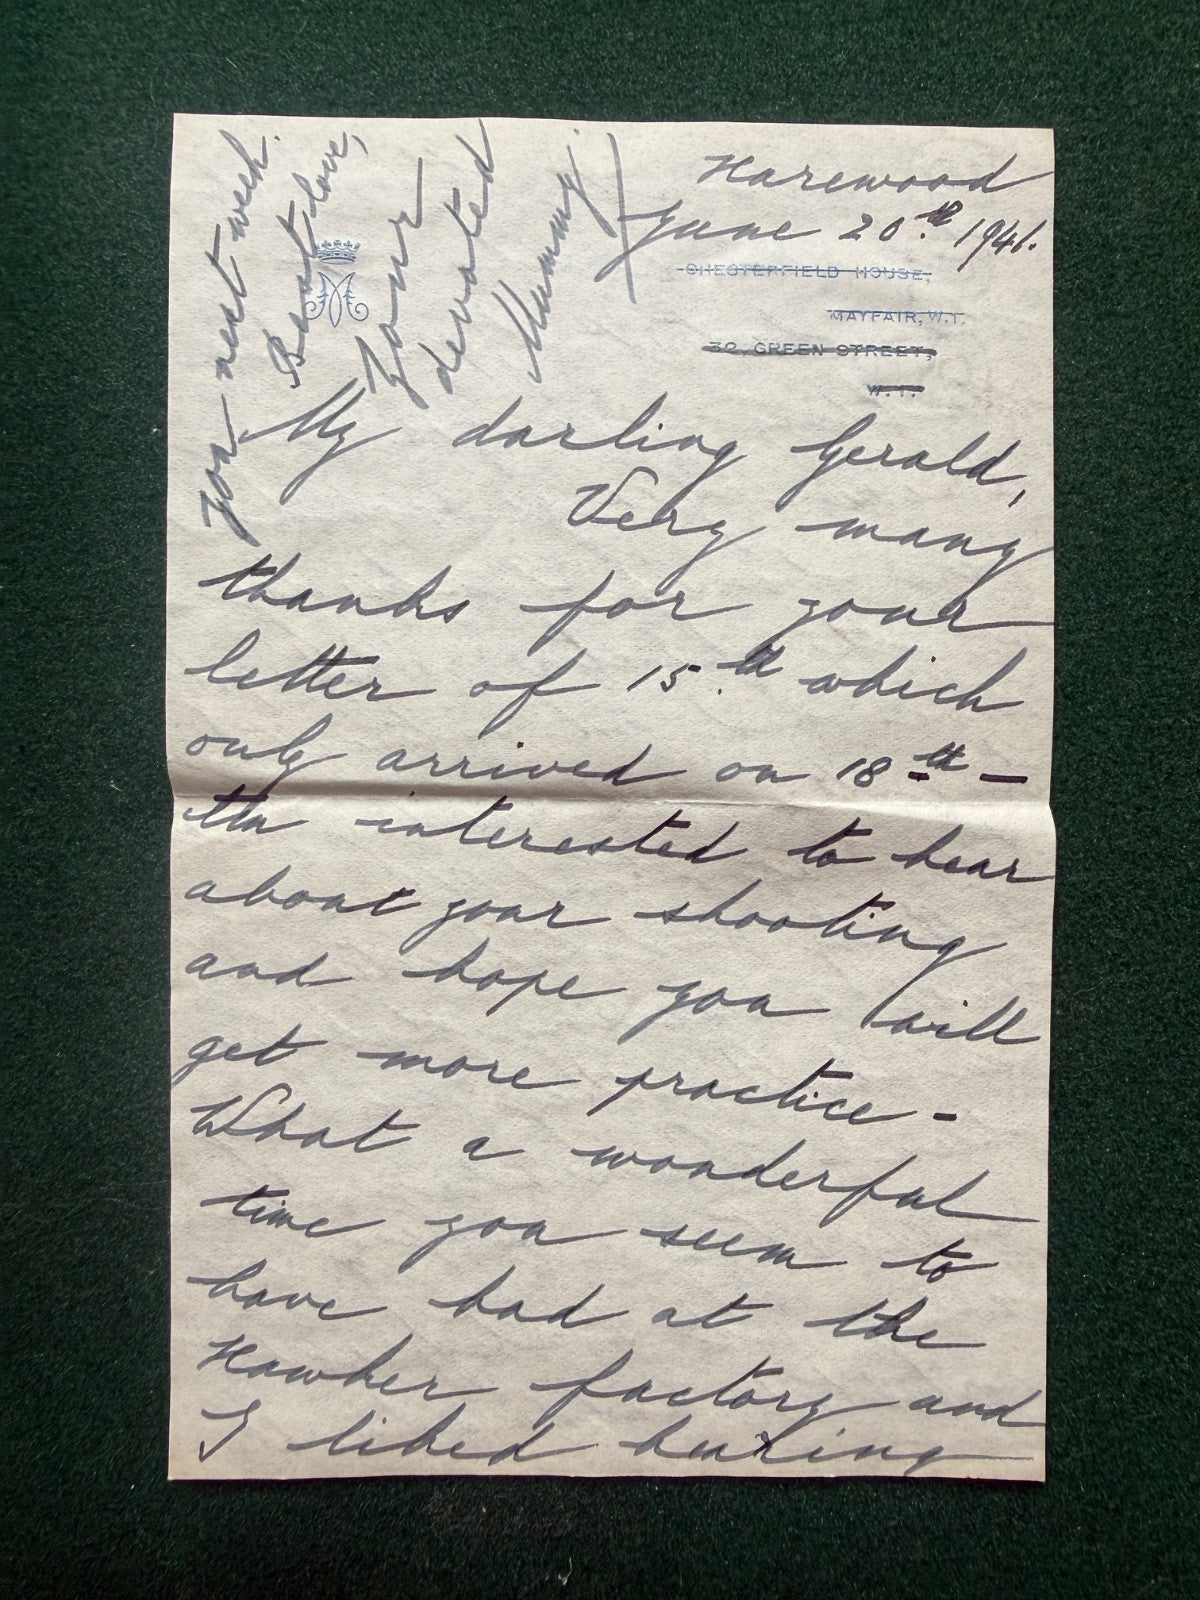 Harewood
June 20th 1941.
CHESTERFIELD HOUSE,
MAYFAIR, W.1.
32, GREEN STREET,
W.1.
My darling Gerald,
Very many
thanks for your
letter of 15th which
only arrived on 18th -
Am interested to hear
about your shooting
and hope you will
get more practice -
What a wonderful
time you seem to
have had at the
Hawker factory and
I liked hearing
you next week.
Best love,
Your
devoted
Mummy.